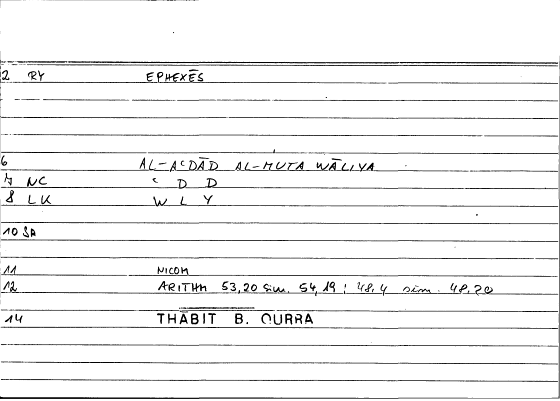 2 RY EPHEXĒS
6 AL-AʿDĀD AL-MUTA WĀLIYA
7 NC ʿ D D
8 LK W L Y
10 SA
11 NICOM
12 ARITHM 53,20 sim. 54,19; 48,4 sim. 48,20
14 THĀBIT B. QURRA